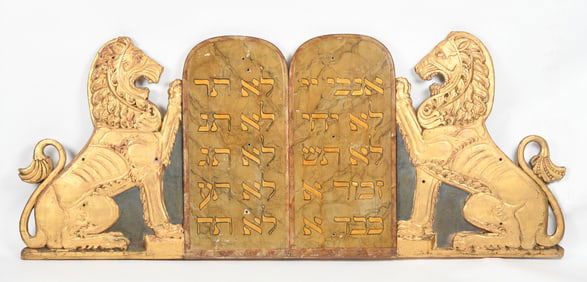 אנכי יי
לא יהי
לא תש
זכור א
כבד א
לא תר
לא תנ
לא תג
לא תע
לא תח